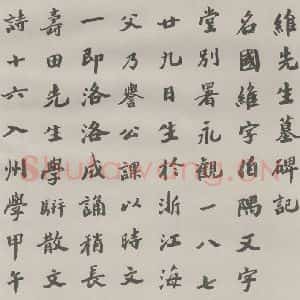 維先生墓碑記
名國維字伯隅又字
堂別署永觀一八七
廿九日生於浙江海
父乃譽公課以時文
一即洛洛成誦稍長
壽田先生學駢散文
詩十六入州學甲午
Shufawang.CN